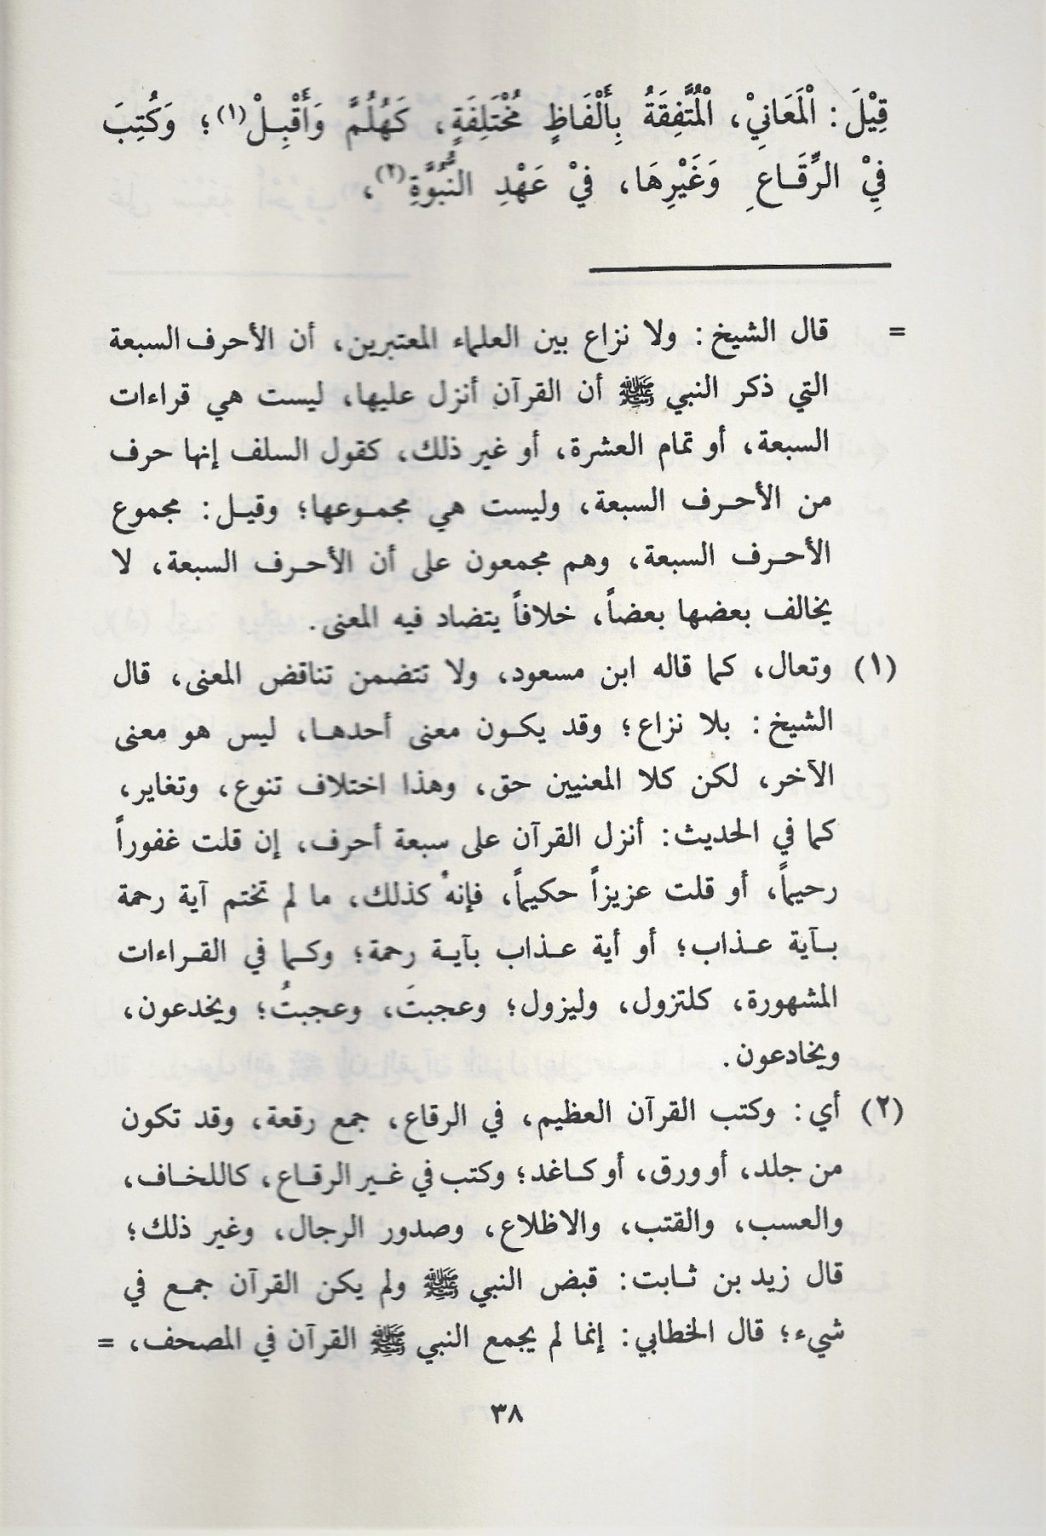 قِيْلَ: اْلمَعَانِيْ، اْلمُتَّفِقَةُ بِأَلْفَاظٍ مُخْتَلِفَةٍ، كَهَلُمَّ وَأَقْبِلْ(١)؛ وَكُتِبَ
فِيْ الرِّقَاعِ وَغَيْرِهَا، فِيْ عَهْدِ النُّبُوَّةِ(٢)،
= قال الشيخ: ولا نزاع بين العلماء المعتبرين، أن الأحرف السبعة
التي ذكر النبي ﷺ أن القرآن أنزل عليها، ليست هي قراءات
السبعة، أو تمام العشرة، أو غير ذلك، كقول السلف إنها حرف
من الأحرف السبعة، وليست هي مجموعها؛ وقيل: مجموع
الأحرف السبعة، وهم مجمعون على أن الأحرف السبعة، لا
يخالف بعضها بعضاً، خلافاً يتضاد فيه المعنى.
(١) وتعال، كما قاله ابن مسعود، ولا تتضمن تناقض المعنى، قال
الشيخ: بلا نزاع؛ وقد يكون معنى أحدها، ليس هو معنى
الآخر، لكن كلا المعنيين حق، وهذا اختلاف تنوع، وتغاير،
كما في الحديث: أنزل القرآن على سبعة أحرف، إن قلت غفوراً
رحيماً، أو قلت عزيزاً حكيماً، فإنه كذلك، ما لم تختم آية رحمة
بآية عذاب؛ أو أية عذاب بآية رحمة؛ وكما في القراءات
المشهورة، كلتزول، وليزول؛ وعجبتَ، وعجبتُ؛ ويخدعون،
ويخادعون.
(٢) أي: وكتب القرآن العظيم، في الرقاع، جمع رقعة، وقد تكون
من جلد، أو ورق، أو كاغد؛ وكتب في غير الرقاع، كاللخاف،
والعسب، والقتب، والاظلاع، وصدور الرجال، وغير ذلك؛
قال زيد بن ثابت: قبض النبي ﷺ ولم يكن القرآن جمع في
شيء؛ قال الخطابي: إنما لم يجمع النبي ﷺ القرآن في المصحف، =
٣٨